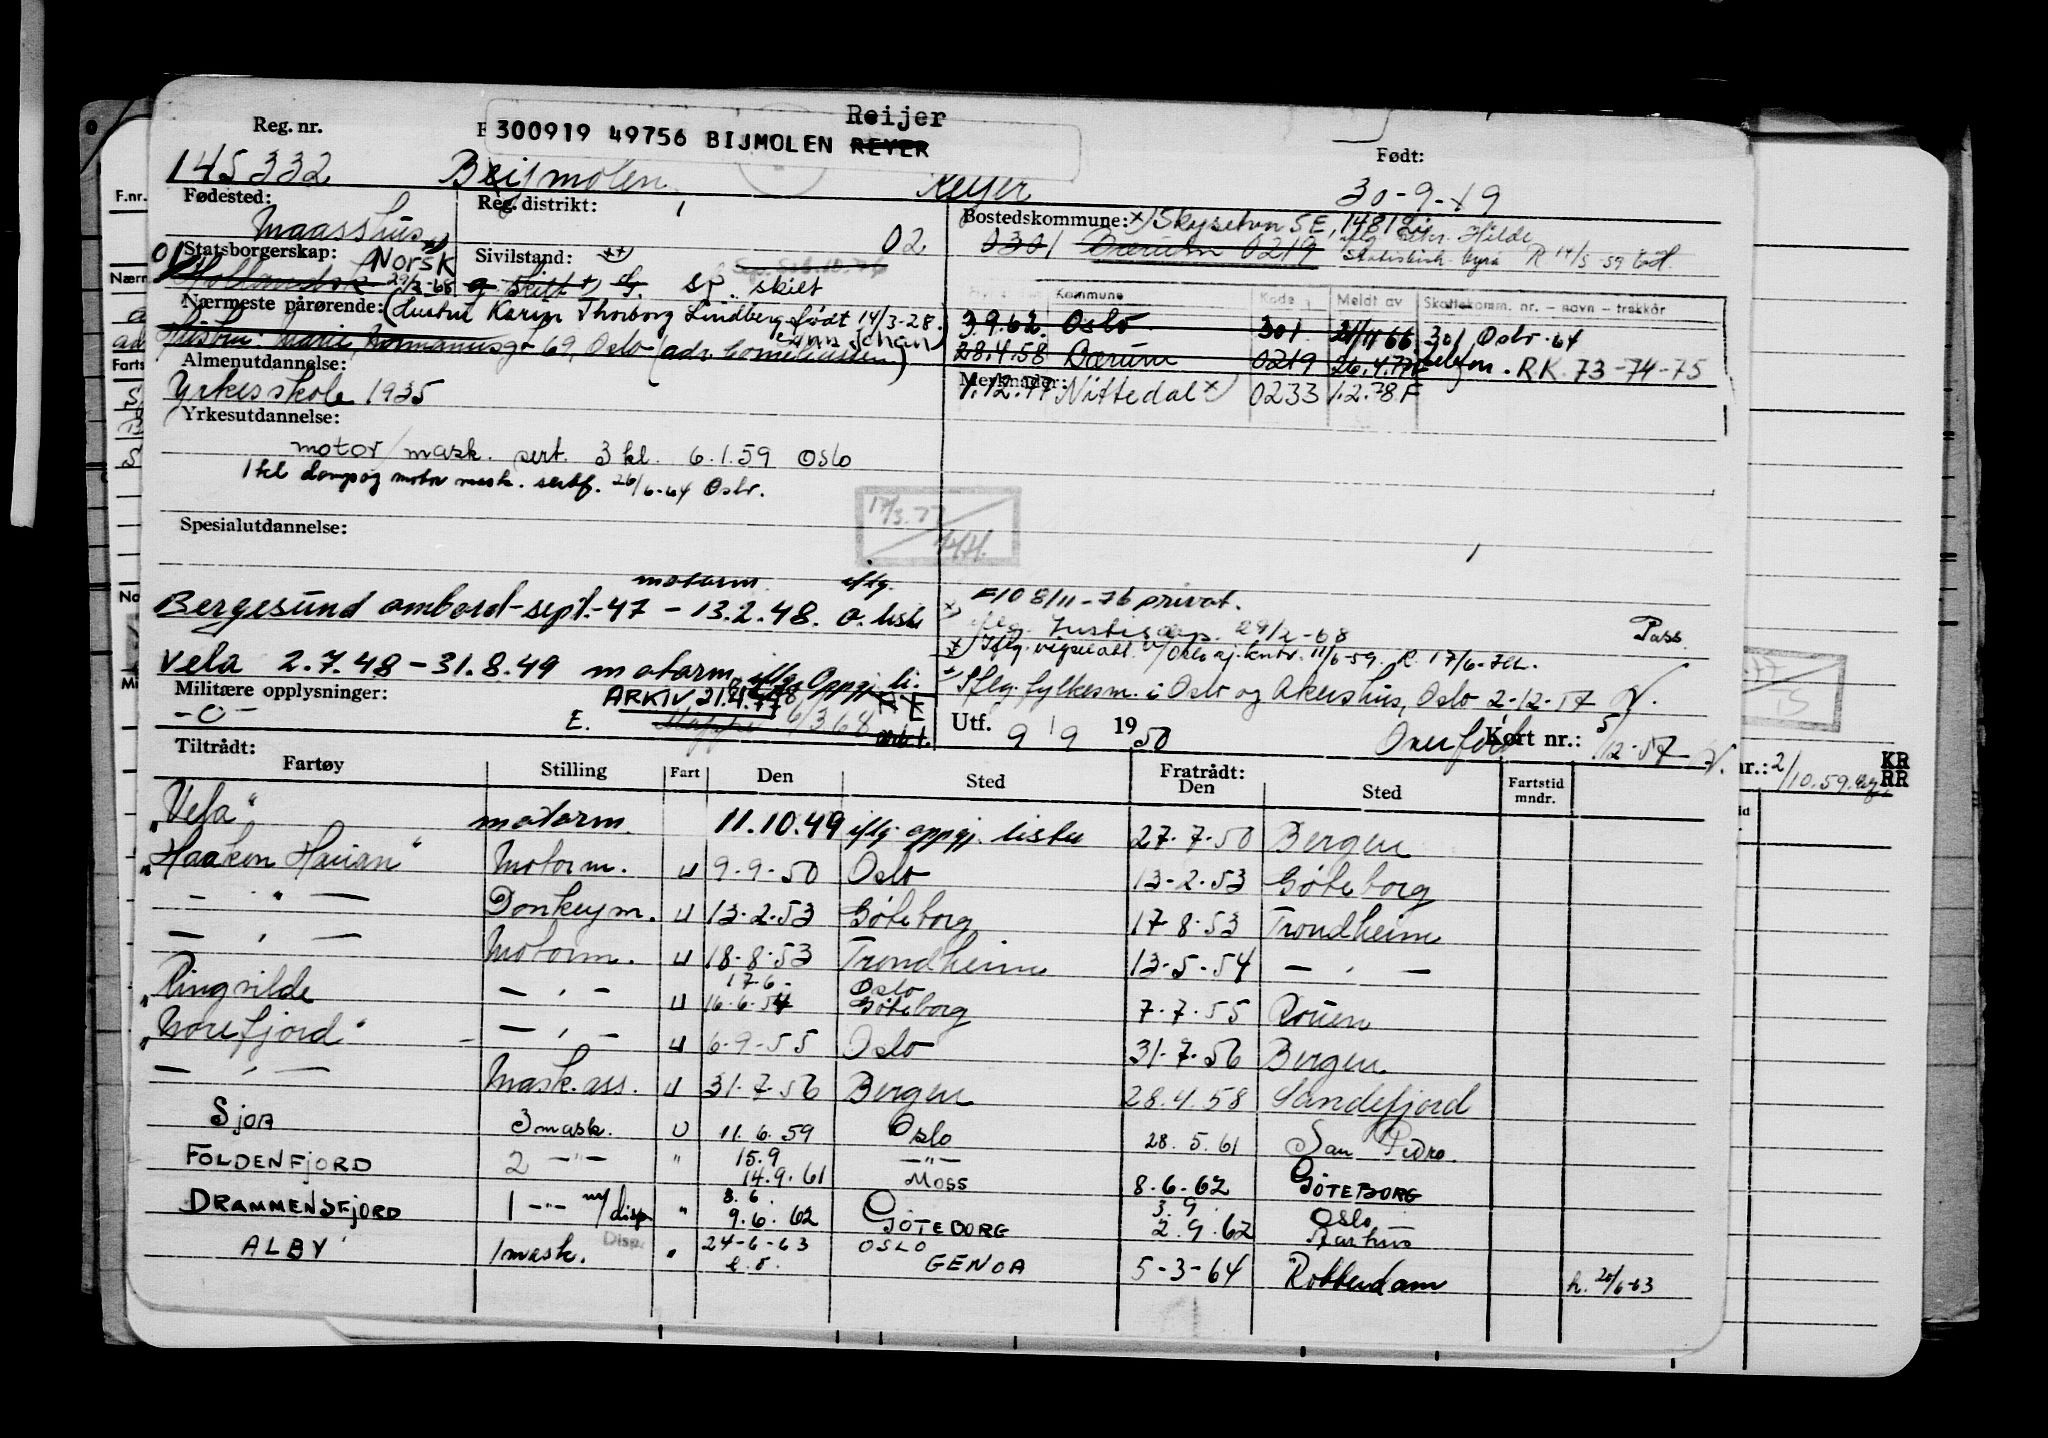 Reijer
Reg. nr.
300919 49756 BIJMOLEN REYER
Født:
145332 Beijmolen Reijer 30-9-19
Fødested: Reg. distrikt: Bostedskommune: x) Skysetvn 5E, 1481 Li
Maasshus 02 0301 Bærum 0219
Statsborgerskap: Norsk Sivilstand:
01 Hollandsk 29/2-68 g skilt s. skilt
Nærmeste pårørende: (Hustru Karin Thorborg Lindberg født 14/3-28.)
Kommune Kode Meldt av Skattekomm. nr. – navn – trekkår
3.9.62. Oslo 301 21/11 66 301 Oslo -64
Hustru: Marie, Hermanusgt 69, Oslo
28.4.58 Bærum 0219 26.4.77 RK 73-74-75
Almenutdannelse: Merknader:
Yrkesskole 1935 1.12.77 Nittedal x) 0233 1.2.78 F
Yrkesutdannelse:
motor/mask. sert. 3 kl. 6.1.59 Oslo
1 kl damp og motor mask. sertf. 26/6-64 Oslo.
Spesialutdannelse:
17/3.77
motorm iflg.
Bergesund ombord-sept.-47 – 13.2.48. o. liste
F10 8/11-76 privat.
iflg. Justisdep. 29/2-68 Pass
Vela 2.7.48 – 31.8.49 motorm iflg. Oppgj. li.
11/6-59. R. 17/6-
Iflg. fylkesm. i Oslo og Akershus, Oslo 2-12-57
Militære opplysninger: ARKIV, 21.4.77
– 0 – E. Mappe 6/3 68
Utf. 9/9 1950 Overført Kort nr.: 5/12-57
nr.: 2/10.59. KR RR
Tiltrådt: Fratrådt:
Fartøy Stilling Fart Den Sted Den Sted Fartstid mndr.
"Vela" motorm. 11.10.49 iflg. oppgj. liste 27-7-50 Bergen
"Haakon Hauan" Motorm. U 9-9-50 Oslo 13-2-53 Göteborg
– " – Donkeym. U 13-2-53 Göteborg 17-8-53 Trondheim
– " – Motorm. U 18-8-53 Trondheim 13-5-54 – " –
17-6- Oslo
Ringvilde – " – U 16-6-54 Göteborg 7-7-55 Rouen
"Norefjord" – " – U 6-9-55 Oslo 31-7-56 Bergen
– " – Mask.ass. U 31-7-56 Bergen 28.4.58 Sandefjord
Sjoa 3 mask. U 11.6.59 Oslo 28.5.61 San Pedro.
15.9 – " –
FOLDENFJORD 2 – " – " 14.9.61 Moss 8-6-62 GÖTEBORG
8.6. 3.9. Oslo
DRAMMENSFJORD 1 – " – m/disp " 9.6.62 GÖTEBORG 2.9.62 Aarhus
Disp. 24-6-63 OSLO
ALBY 1 mask. " e.o. GENOA 5-3-64 Rotterdam h. 20/6-63